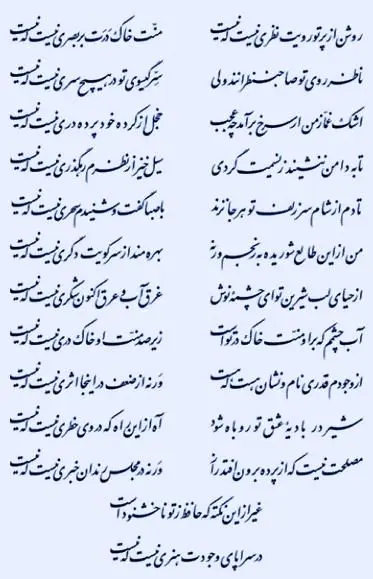 روشن از پرتو رویت نظری نیست که نیست منّت خاک درت بر بصری نیست که نیست
ناظر روی تو صاحب نظرانند ولی سرّ گیسوی تو در هیچ سری نیست که نیست
اشک غمّاز من ار سرخ برآمد چه عجب خجل از کرده خود پرده دری نیست که نیست
تا به دامن ننشیند ز نسیمت گردی سیل خیز از نظرم رهگذری نیست که نیست
تا دم از شام سر زلف تو هر جا نزند با صبا گفت و شنیدم سحری نیست که نیست
من از این طالع شوریده به رنجم ورنه بهره مند از سر کویت دگری نیست که نیست
از حیای لب شیرین تو ای چشمهٔ نوش غرق آب و عرق اکنون شکری نیست که نیست
آب چشمم که بر او منّت خاک در توست زیر صد منّت او خاک دری نیست که نیست
از وجودم قدری نام و نشان هست که هست ورنه از ضعف در اینجا اثری نیست که نیست
شیر در بادیهٔ عشق تو روباه شود آه از این راه که در وی خطری نیست که نیست
مصلحت نیست که از پرده برون افتد راز ورنه در مجلس رندان خبری نیست که نیست
غیر از این نکته که حافظ ز تو ناخشنود است
در سراپای وجودت هنری نیست که نیست